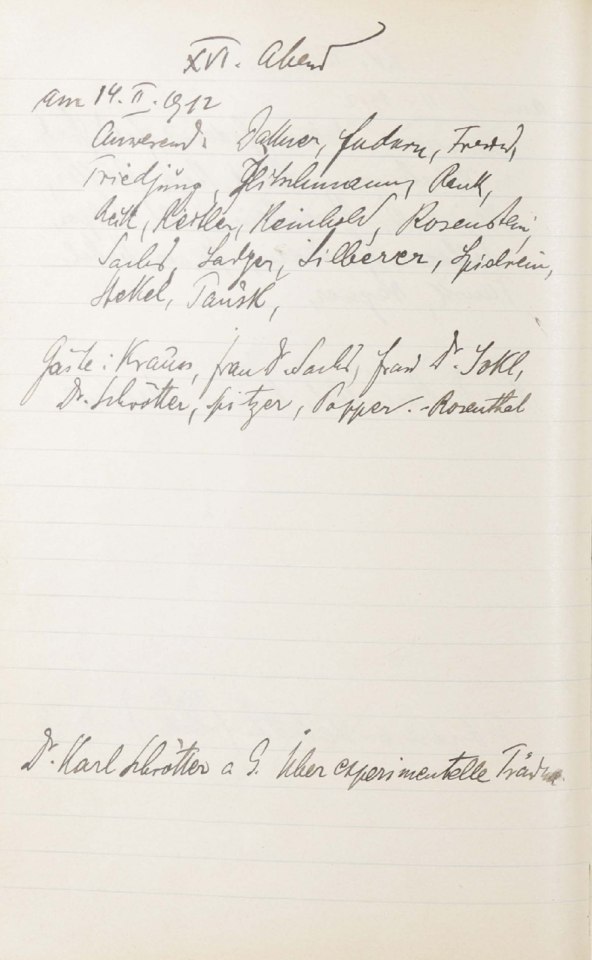 XVI. Abend
am 14. II. 1912
Anwesend: Dattner, Federn, Freud,
Friedjung, Hitschmann, Rank,
Reik, Reitler, Reinhold, Rosenstein,
Sachs, Sadger, Silberer, Spielrein,
Stekel, Tausk,
Gäste: Kraus, Frau Dr. Sachs, Frau Dr. Jokl,
Dr. Schrötter, Spitzer, Popper. - Rosenthal
Dr. Karl Schrötter a G. Über experimentelle Träume